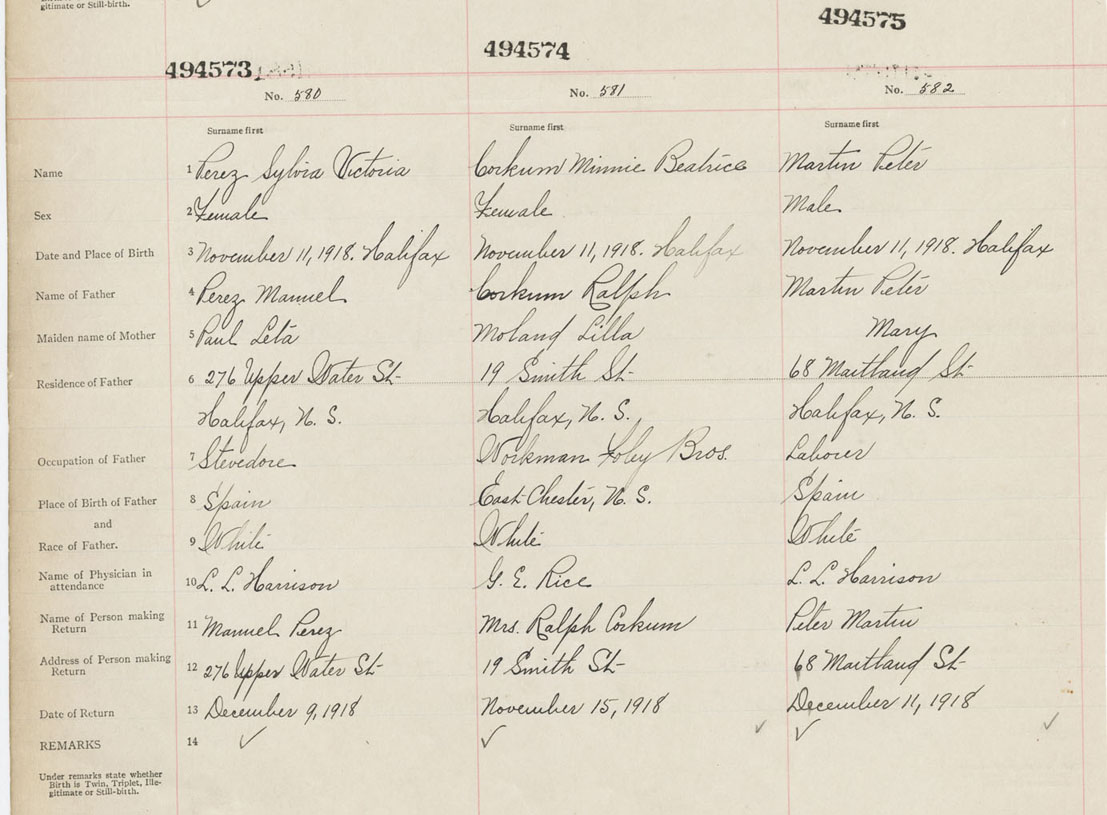 gitimate or Still-birth.
494573 494574 494575
No. 580 No. 581 No. 582
Surname first Surname first Surname first
Name 1 Perez Sylvia Victoria Corkum Minnie Beatrice Martin Peter
Sex 2 Female Female Male
Date and Place of Birth 3 November 11, 1918. Halifax November 11, 1918. Halifax November 11, 1918. Halifax
Name of Father 4 Perez Manuel Corkum Ralph Martin Peter
Maiden name of Mother 5 Paul Leta Moland Lilla Mary
Residence of Father 6 276 Upper Water St 19 Smith St 68 Maitland St
Halifax, N. S. Halifax, N. S. Halifax, N. S.
Occupation of Father 7 Stevedore Workman Foley Bros. Labourer
Place of Birth of Father 8 Spain East Chester, N. S. Spain
and
Race of Father. 9 White White White
Name of Physician in attendance 10 L. L. Harrison G. E. Rice L. L. Harrison
Name of Person making Return 11 Manuel Perez Mrs. Ralph Corkum Peter Martin
Address of Person making Return 12 276 Upper Water St 19 Smith St 68 Maitland St
Date of Return 13 December 9, 1918 November 15, 1918 December 11, 1918
REMARKS 14 ✓ ✓ ✓ ✓ ✓
Under remarks state whether
Birth is Twin, Triplet, Ille-
gitimate or Still-birth.